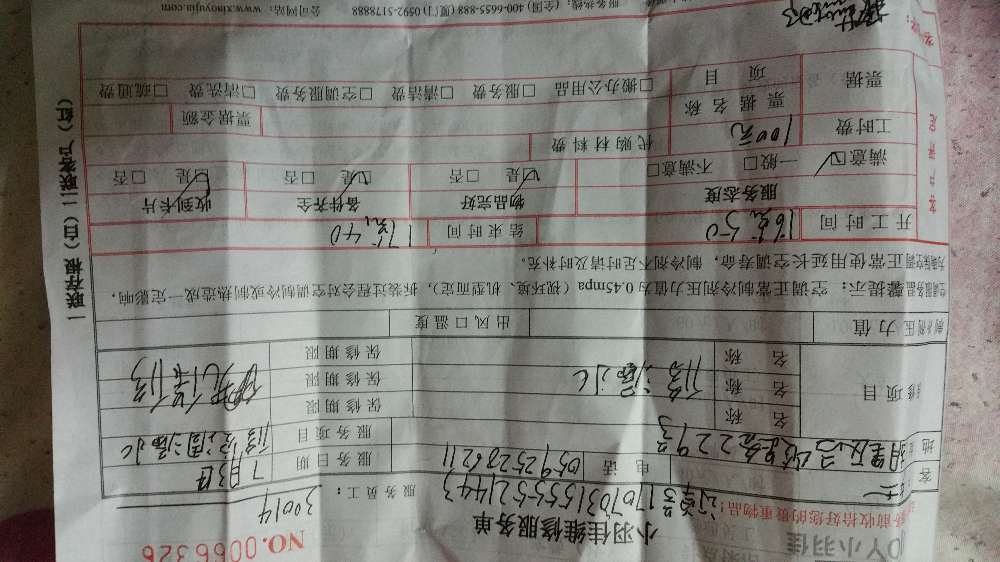 小羽佳
NO.0066326
小羽佳维修服务单
务前收拾好您的贵重物品！
服务员工：30014
1707031555521443
客
电话
05925286211
服务日期
7月3日
地
服务项目
修空调漏水
修项目
名称
保修期限
名称
保修期限
名称
修漏水
保修期限
制冷剂压力值
出风口温度
温馨提示：空调正常制冷剂压力值为0.45mpa（视环境、机型而定），拆装过程会对空调制冷或制热造成一定影响，
正常使用延长空调寿命，制冷剂不足时请及时补充。
开工时间
16点50
结束时间
17点40
客户评定
服务态度
物品完好
备件齐全
收到卡片
满意☑ 一般□ 不满意□
☑是 □否
☑是 □否
☑是 □否
工时费
100元
代购材料费
票据
票据名称
票据金额
项目
□搬办公用品 □服务费 □清洁费 □空调服务费 □清洗费 □疏通费
服务热线：(全国) 400-6655-888 (厦门) 0592-5178888
公司网站：www.xiaoyujia.com
一联存根（白）二联客户（红）